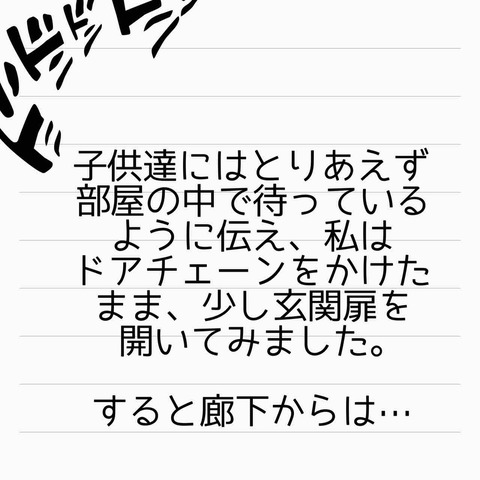 ドンドドド
子供達にはとりあえず
部屋の中で待っている
ように伝え、私は
ドアチェーンをかけた
まま、少し玄関扉を
開いてみました。
すると廊下からは…